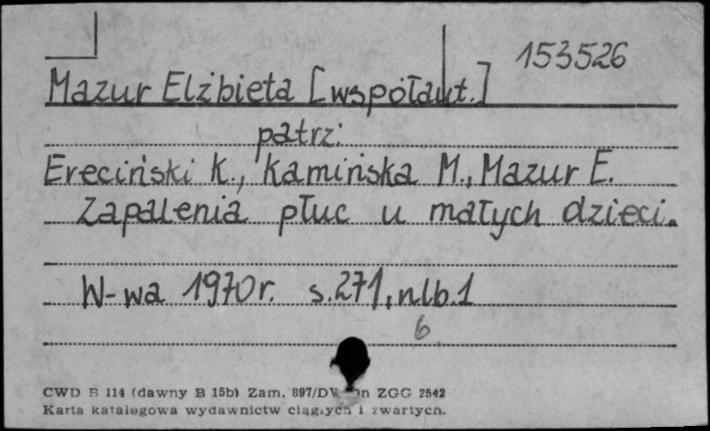 153526
Mazur Elżbieta [współaut.]
patrz:
Ereciński K., Kamińska M., Mazur E.
Zapalenia płuc u małych dzieci.
W-wa 1970r. s.271, nlb.1
6
CWD B 114 (dawny B 15b) Zam. 897/DW ZGG 2542
Karta katalogowa wydawnictw ciągłych i zwartych.